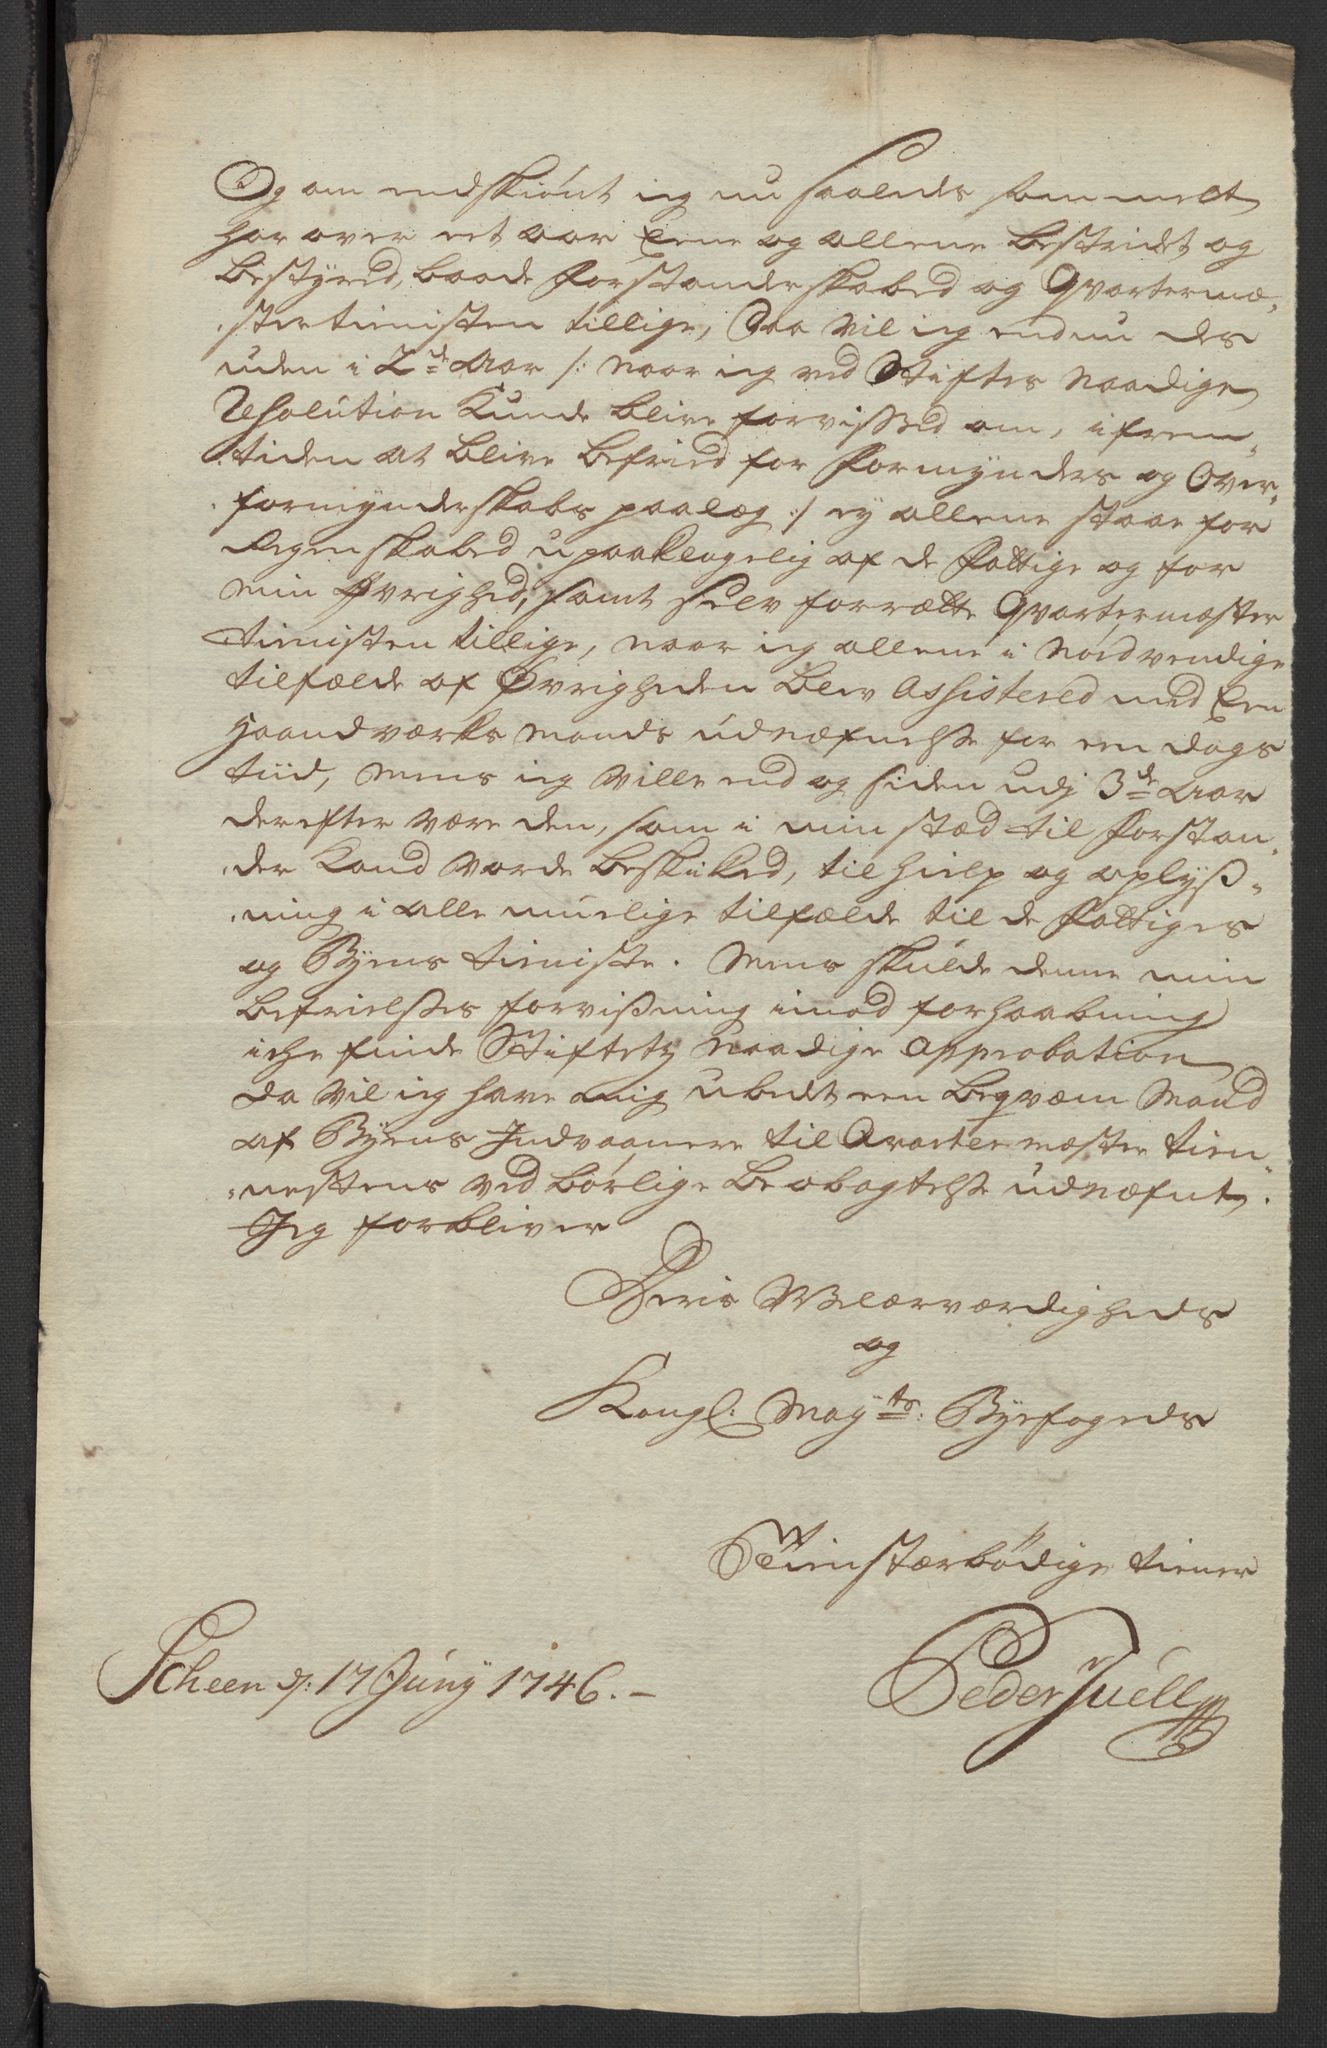 Og om endskiönt ieg nu saaledes som melt
har over eet aar Eene og allene bestridt og
bestyred, baade Forstanderskabed og Qvarterme,,
,,stertienisten tillige, Saa vil ieg endnu des
uden i 2de Aar /: naar ieg ved Stiftes Naadige
Resolution Kunde blive forvissed om, i frem,,
,,tiden at blive befried for Formynders og Over,,
,,formynderskabs paalæg :/ ey allene staae for
Regenskabed upaaklagelig af de Fattige og for
min Øvrighed, samt selv forrætte Qvartermæster
tienisten tillige, naar ieg allene i Nödvendige
tilfælde af Øvrigheden blev Assistered med Een
Haandværks Mands udnæfnelsse for een dags
tiid, Mens ieg ville end og siden udj 3de Aar
derefter være den, som i min stæd til Forstan,,
,,der Kand vorde beskicked, til hielp og oplyß,,
,,ning i alle muelige tilfælde til de Fattiges
og Byens tieniste. Mens skulde denne min
befrielsses forvißning imod forhaabning
iche finde Stiftetz Naadige Approbation
da vil ieg have mig ubedt een beqvæm Mand
af Byens Indvaanere til Qvartermæster tien,,
,,nestens ved börlige be obagtelsse udnæfnt.
Jeg forbliver
Deris Velærværdigheds
og
Kongl: Mayts: Byefogeds
Tienstærbödige tiener
Scheen d: 17 Juny 1746. –
Peder Juell